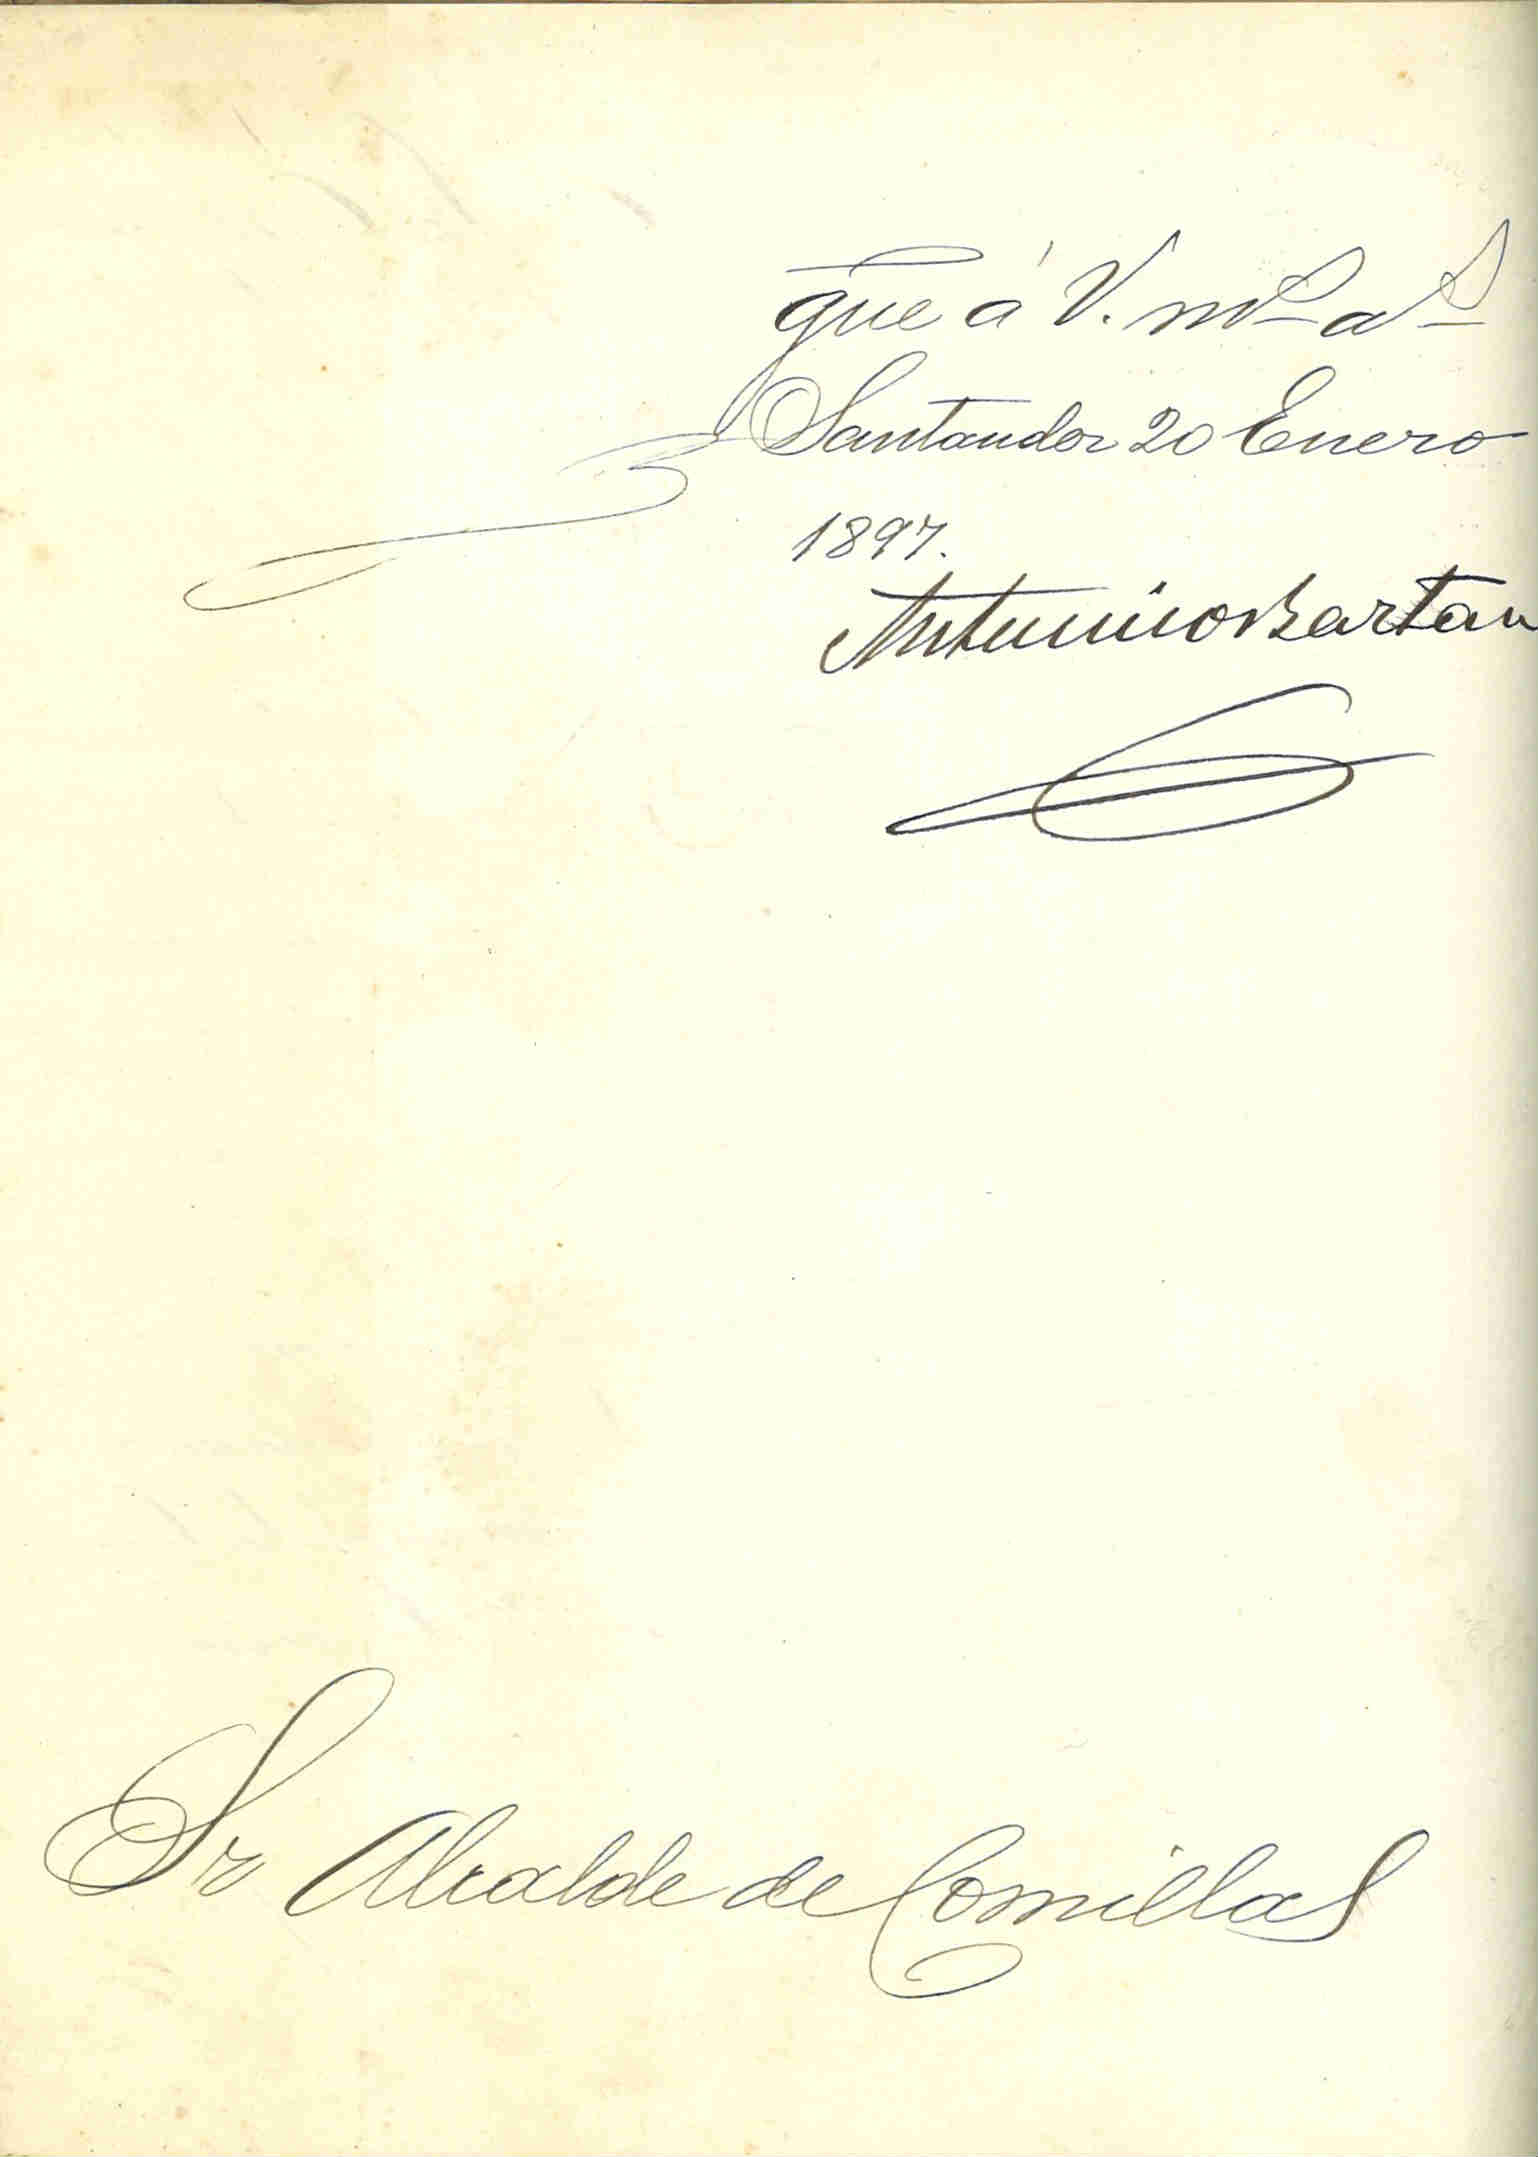 gue á V. ms as
Santander 20 Enero
1897.
Antonino Bartan
Sr Alcalde de Comillas